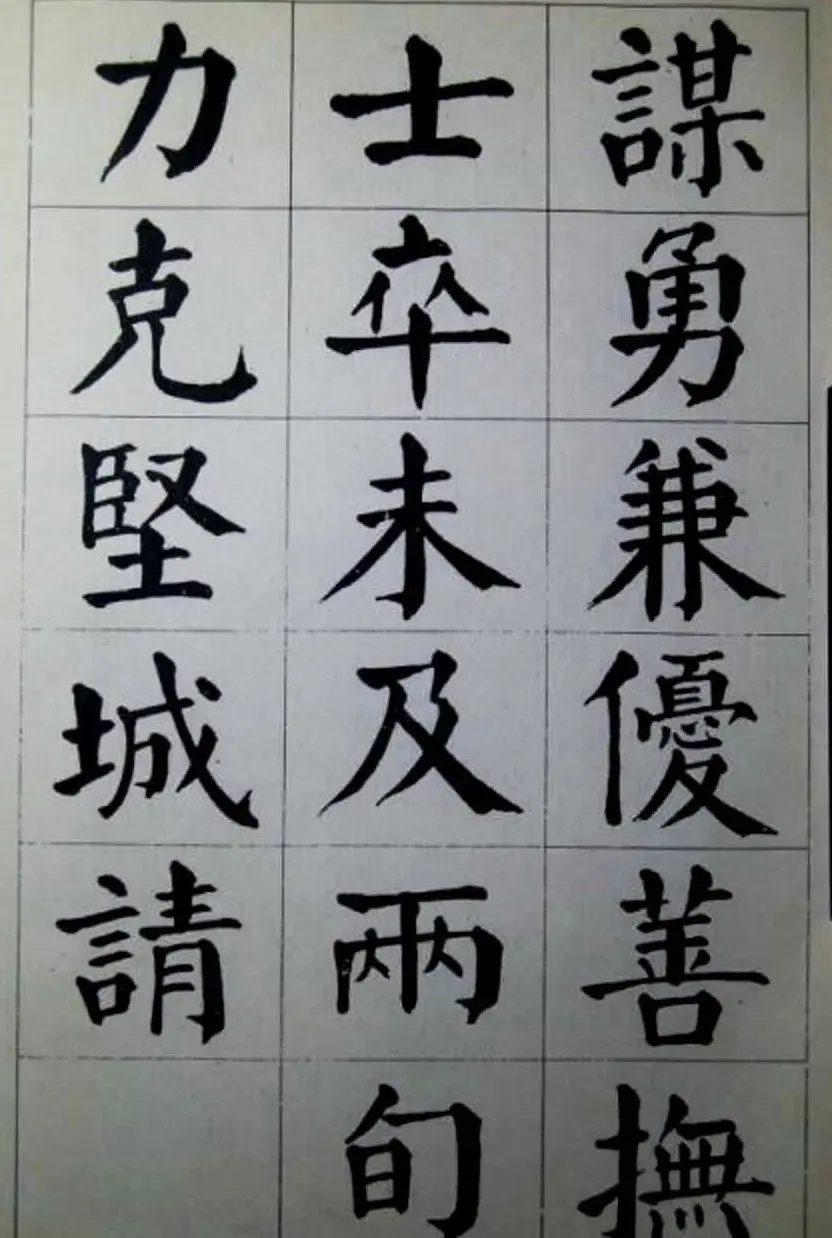 謀勇兼優善撫
士卒未及兩旬
力克堅城請